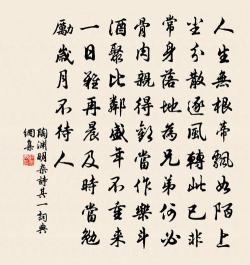 人生無根蒂飄如陌上
塵分散逐風轉此已非
常身落地為兄弟何必
骨肉親得歡當作樂斗
酒聚比鄰盛年不重來
一日難再晨及時當勉
勵歲月不待人
陶淵明雜詩其一詞典
網集